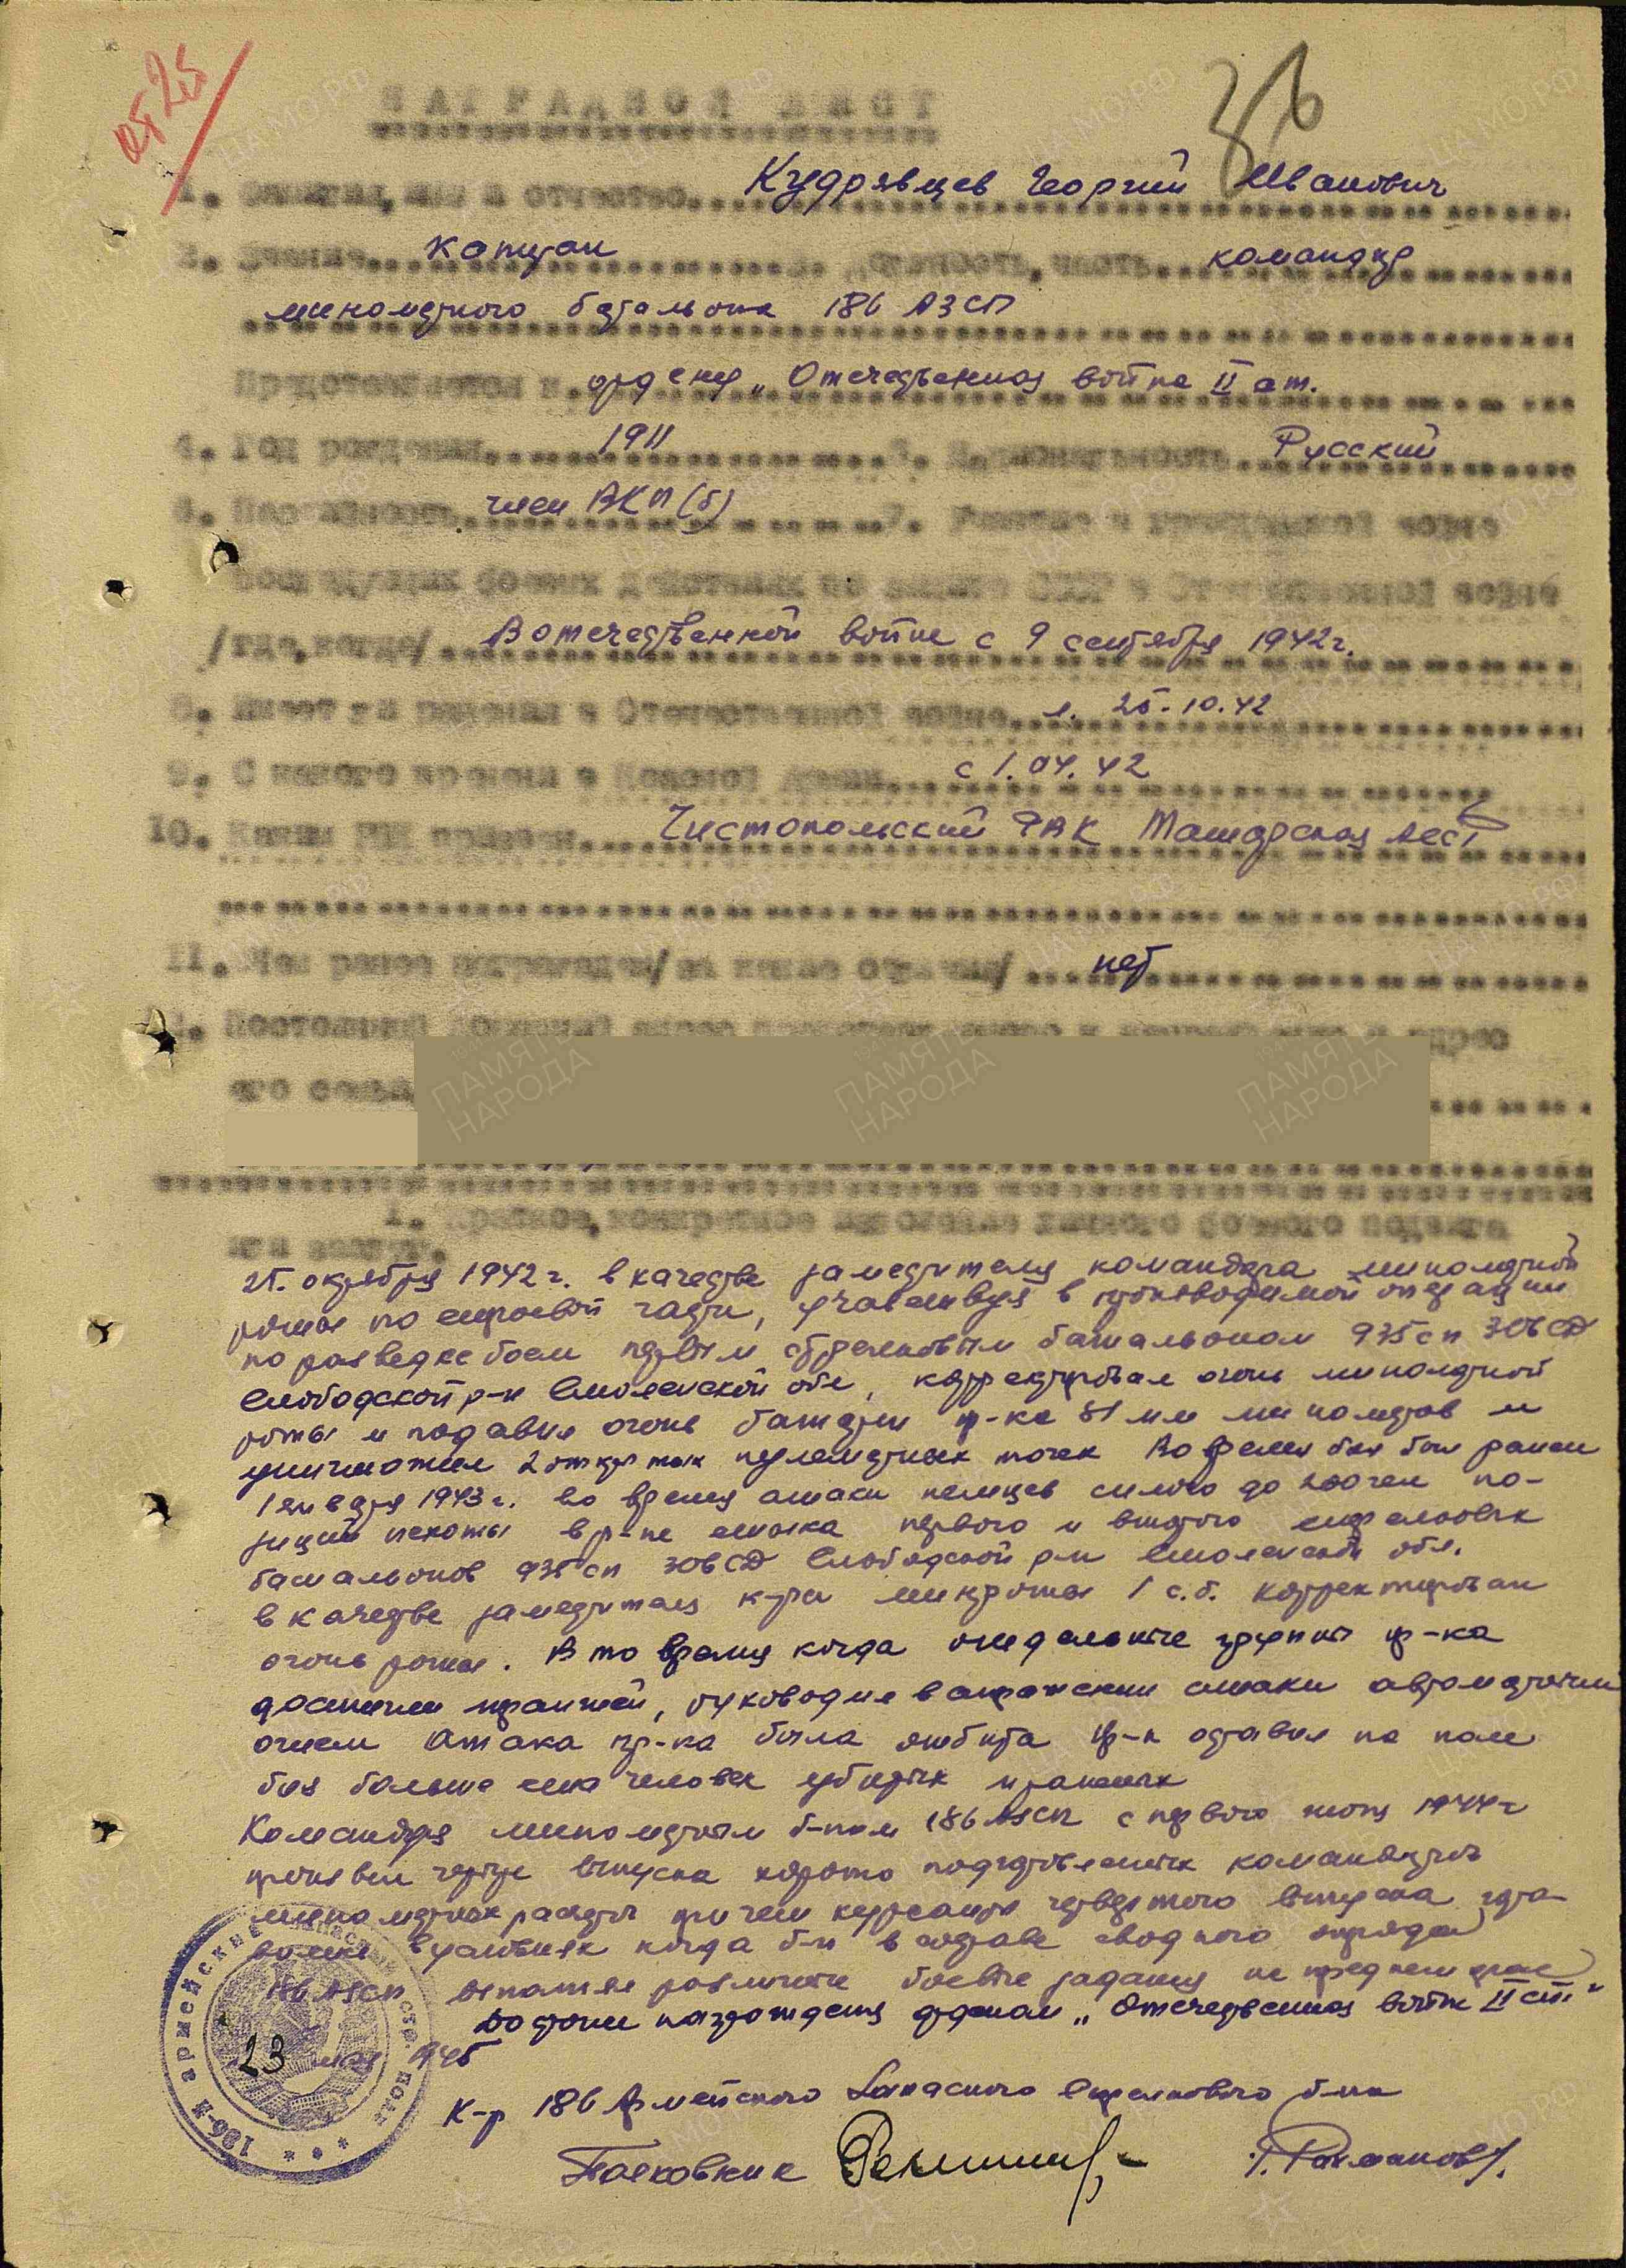 НАГРАДНОЙ ЛИСТ
1. Фамилия, имя и отчество Кудрявцев Георгий Иванович
2. Звание капитан 3. Должность, часть командир
минометного батальона 186 АЗСП
Представляется к ордену „Отечественная война II ст.
4. Год рождения 1911 5. Национальность Русский
6. Партийность член ВКП(б) 7. Участие в гражданской войне
боевых действиях по защите СССР и Отечественной войне
/где, когда/ В отечественной войне с 9 сентября 1942 г.
8. Имеет ли ранения в Отечественной войне л. 25.10.42
9. С какого времени в Красной Армии с 1.04.42
10. Каким РВК призван Чистопольский РВК Татарская АССР
11. Чем ранее награжден /за какие отличия/ нет
Постоянный домашний адрес адрес
его семьи
1. Краткое, конкретное изложение личного боевого подвига
или заслуг.
25 октября 1942 г. в качестве заместителя командира минометной
роты по строевой части, участвуя в производимой операции
по разведке боем первым стрелковым батальоном 935 сп 306 СД
Слободской р-н Смоленской обл, корректировал огонь минометной
роты и подавил огонь батареи пр-ка 81 мм минометов и
уничтожил 2 открытых пулеметных точек Во время боя был ранен
1 января 1943 г. во время атаки немцев силою до 200 чел по-
зиций пехоты в р-не стыка первого и второго стрелковых
батальонов 935 сп 306 СД Слободской р-н Смоленской обл.
в качестве заместителя к-ра минроты 1 с.б. корректировал
огонь роты. В то время когда отдельные группы пр-ка
достигли траншей, руководил в отражении атаки автоматным
огнем Атака пр-ка была отбита Пр-к оставил на поле
боя больше ста человек убитых и раненых
Командуя минометным б-ном 186 АЗСП с первого июня 1944 г
произвел четыре выпуска хорошо подготовленных командиров
минометных расчетов причем курсанты четвертого выпуска
в условиях когда б-н в составе сводного отряда
186 АЗСП выполнял различные боевые задания
Достоин награждения орденом „Отечественная война II ст."
23 мая 1945
К-р 186 Армейского Запасного Стрелкового полка
Полковник Г. Рахманов